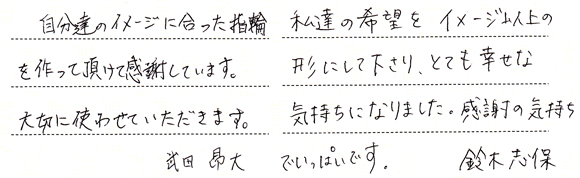 自分達のイメージに合った指輪
を作って頂けて感謝しています。
大切に使わせていただきます。
武田 昂大
私達の希望を イメージ以上の
形にして下さり、とても幸せな
気持ちになりました。感謝の気持ち
でいっぱいです。
鈴木志保